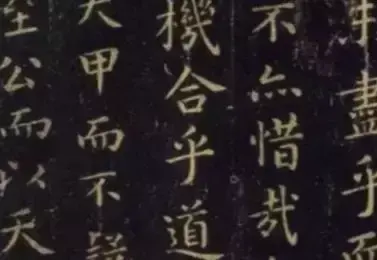 盡乎而
不亦惜哉
機合乎道
大甲而不
至公而以天